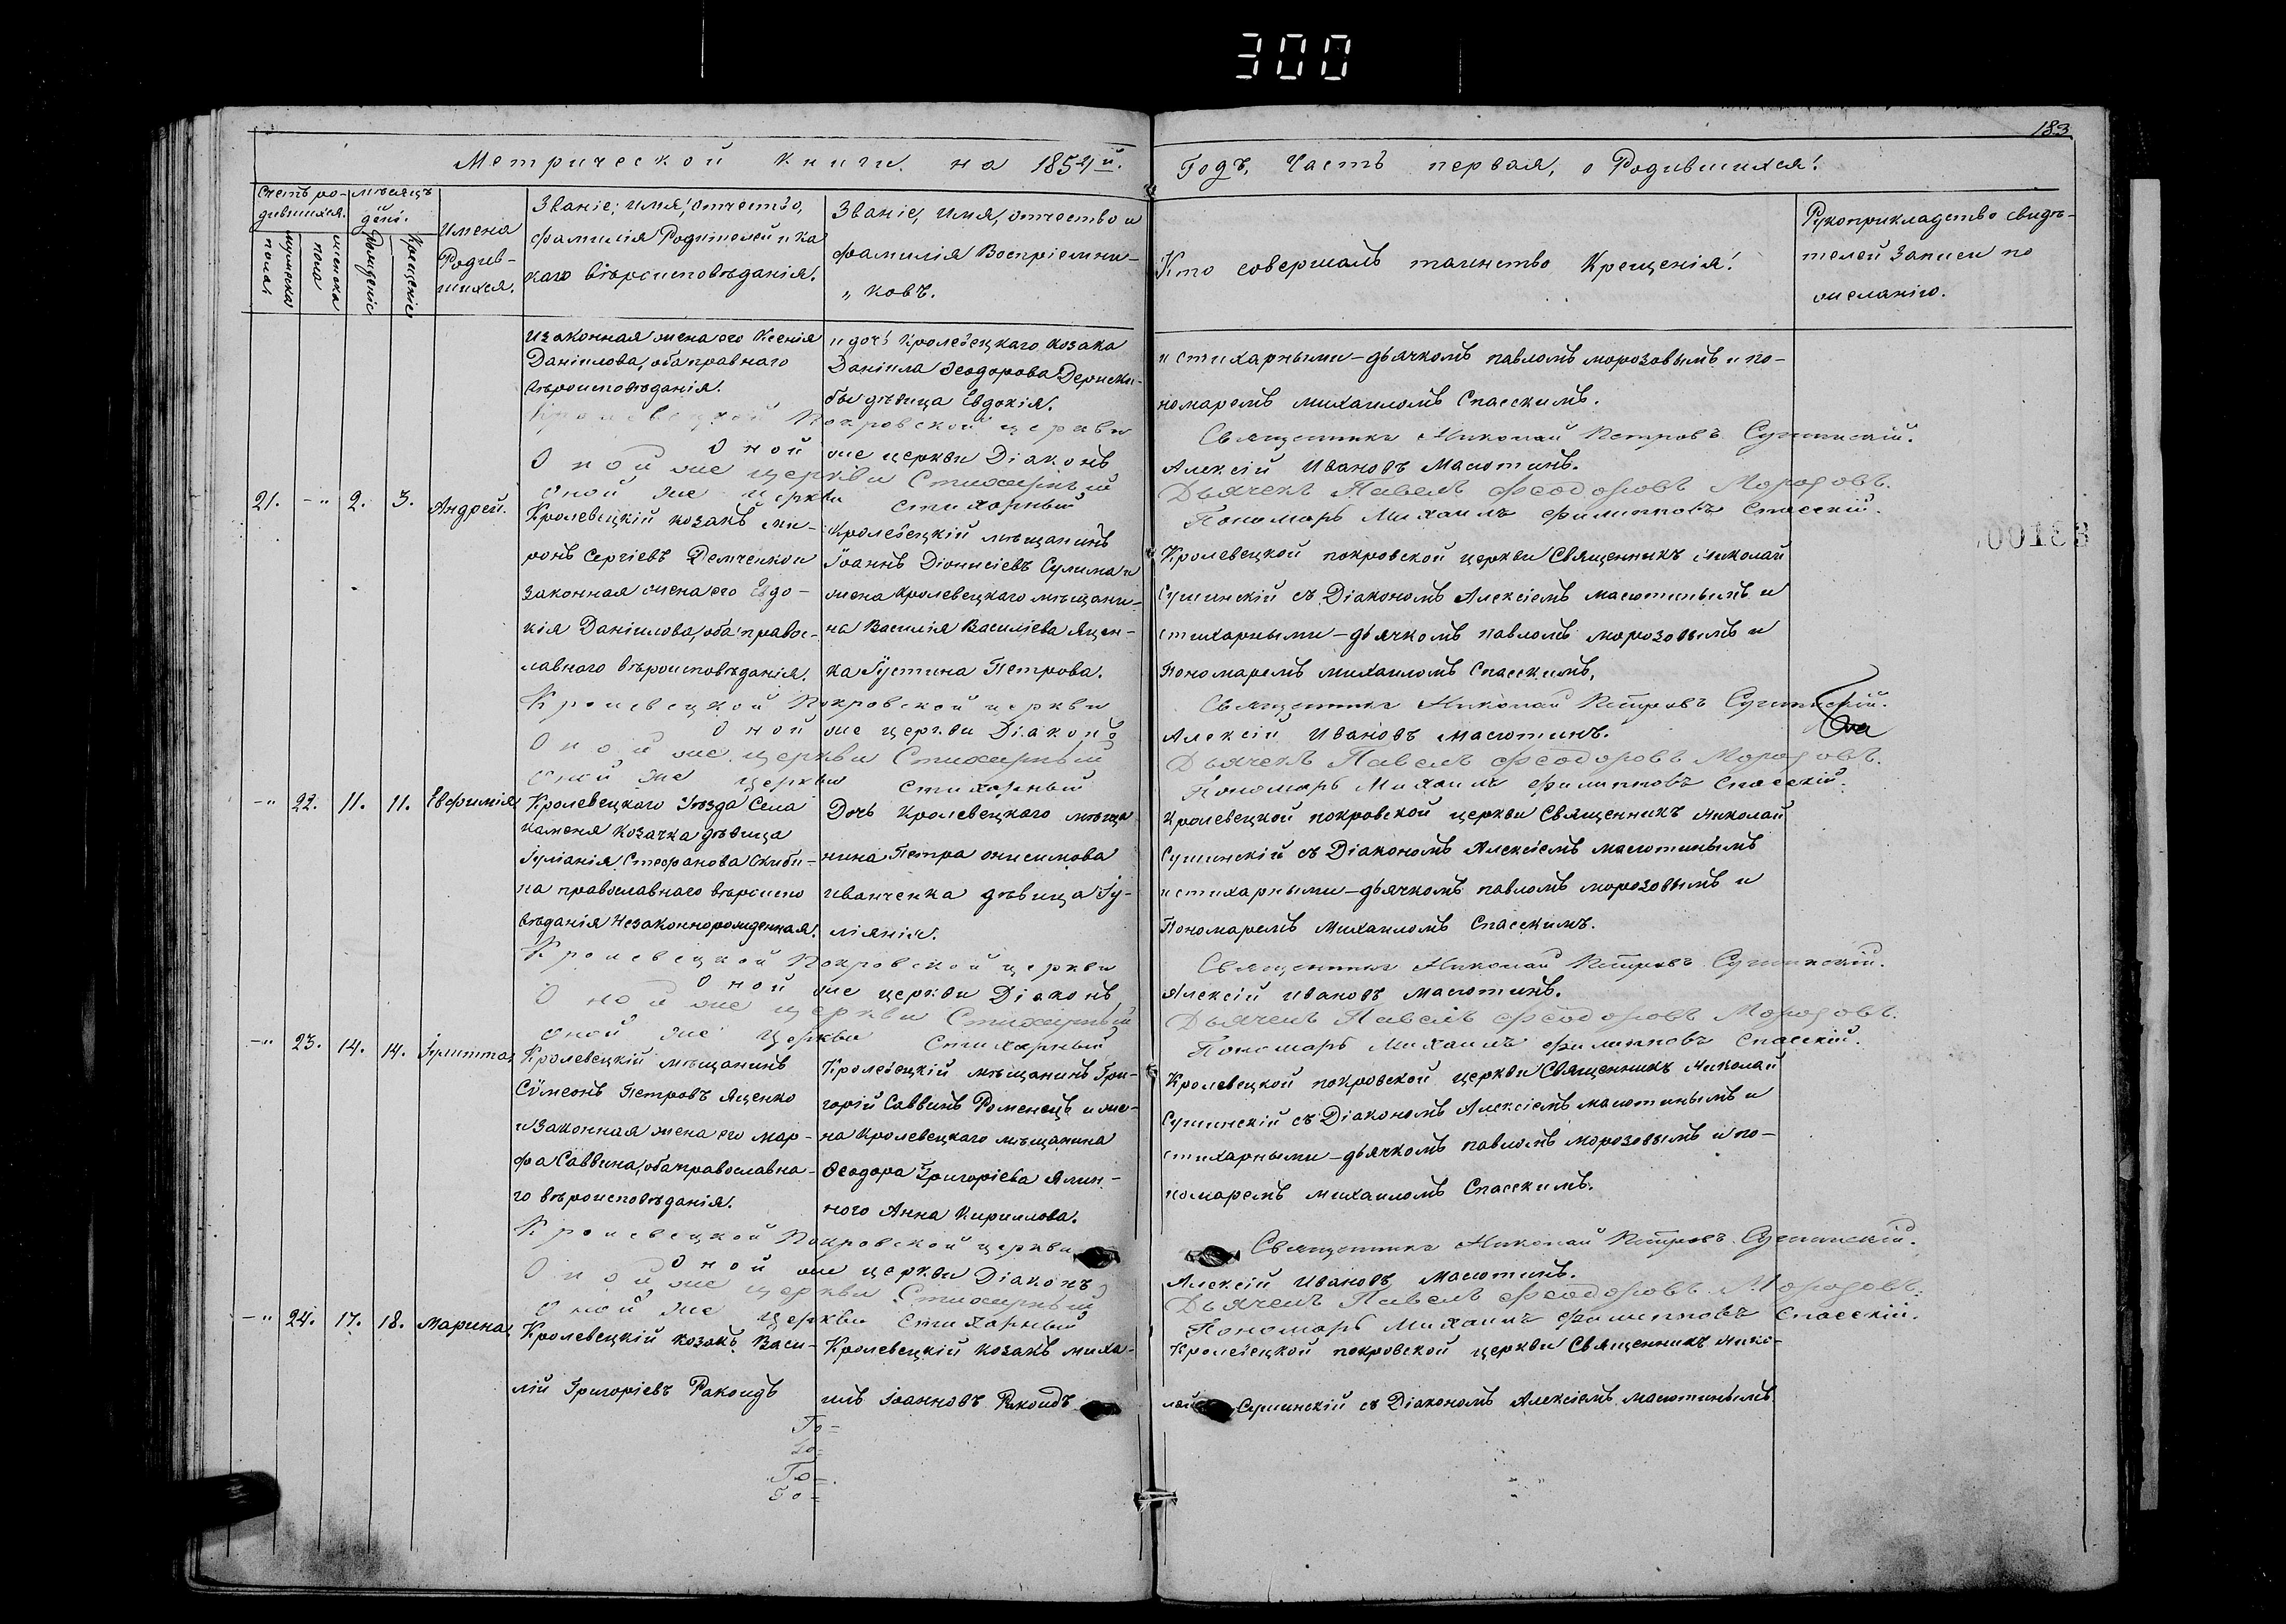 300
183
Метрической книги на 1854й. Годъ, Часть первая, о Родившихся!
Счетъ ро-
дившихся.
мужеска
пола
женска
пола
мѣсяцъ
день.
Рожденіе
Крещеніе
Имена
Родив-
шихся.
Званіе, имя, отчество,
фамилія Родителей и ка
каго вѣроисповѣданія.
Званіе, имя, отчество и
фамилія Воспріемни-
„ ковъ.
Кто совершалъ таинство Крещенія!
Рукоприкладство свидѣ-
телей записи по
желанію.
и законная жена его Ксенія
Даніилова, оба правнаго
вѣроисповѣданія.
и дочь Кролевецкаго козака
Даніила Ѳеодорова
дѣвица Евдокія.
и стихарными-дьячкомъ павломъ морозовымъ и по-
номаремъ михаиломъ Спасскимъ.
Кролевецкой Покровской церкви Священникъ Николай Петровъ Сушинскій.
Оной же церкви Діаконъ Алексій Ивановъ Масютинъ.
Оной же церкви Стихарный Дьячекъ Павелъ Феодоровъ Морозовъ.
Оной же церкви стихарный Пономарь Михаилъ Филипповъ Спасскій.
21. -" 2. 3. Андрей.
Кролевецкій козакъ ми-
ронъ Сергіевъ Демченко и
законная жена его Евдо-
кія Даніилова, оба правос-
лавнаго вѣроисповѣданія.
Кролевецкій мѣщанинъ
Іоаннъ Діонисіевъ Сулима и
жена Кролевецкаго мѣщани-
на Василія Василіева Яцен-
ка Іустина Петрова.
Кролевецкой покровской церкви Священникъ Николай
Сушинскій съ Діакономъ Алексіемъ масютинымъ и
стихарными-дьячкомъ павломъ морозовымъ и
Пономаремъ михаиломъ Спасскимъ.
00183
Кролевецкой Покровской церкви Священникъ Николай Петровъ Сушинскій.
Оной же церкви Діаконъ Алексій Ивановъ масютинъ.
Оной же церкви Стихарный Дьячекъ Павелъ Феодоровъ Морозовъ.
Оной же церкви стихарный Пономарь Михаилъ Филипповъ Спасскій.
-" 22. 11. 11. Евфимія
Кролевецкаго Уѣзда Села
каменя козачка дѣвица
Іуліанія Стефанова Скиби-
на православнаго вѣроиспо
вѣданія Незаконнорожденная.
Дочь Кролевецкаго мѣща
нина Петра онисимова
иванченка дѣвица Іу-
ліанія.
Кролевецкой покровской церкви Священникъ Николай
Сушинскій съ Діакономъ Алексіемъ масютинымъ
и стихарными-дьячкомъ павломъ морозовымъ и
Пономаремъ михаиломъ Спасскимъ.
Кролевецкой Покровской церкви Священникъ Николай Петровъ Сушинскій.
Оной же церкви Діаконъ Алексій Ивановъ масютинъ.
Оной же церкви Стихарный Дьячекъ Павелъ Феодоровъ Морозовъ.
Оной же церкви Стихарный Пономарь Михаилъ Филипповъ Спасскій.
-" 23. 14. 14. Іулитта
Кролевецкій мѣщанинъ
Сѵмеонъ Петровъ Яценко
и законная жена его мар-
фа Саввина, оба православна-
го вѣроисповѣданія.
Кролевецкій мѣщанинъ Гри-
горій Саввинъ Роменецъ и же-
на Кролевецкаго мѣщанина
Ѳеодора Григоріева Ялин-
ного Анна Кириллова.
Кролевецкой покровской церкви Священникъ Николай
Сушинскій съ Діакономъ Алексіемъ масютинымъ и
стихарными-дьячкомъ павломъ морозовымъ и по-
номаремъ михаиломъ Спасскимъ.
Кролевецкой Покровской церкви Священникъ Николай Петровъ Сушинскій.
Оной же церкви Діаконъ Алексій Ивановъ масютинъ.
Оной же церкви Стихарный Дьячекъ Павелъ Феодоровъ Морозовъ.
Оной же церкви стихарный Пономарь Михаилъ Филипповъ Спасскій.
-" 24. 17. 18. марина
Кролевецкій козакъ Васи-
лій Григоріевъ Ракоидъ
Кролевецкій козакъ миха-
илъ Іоанновъ Ракоидъ
Кролевецкой покровской церкви Священникъ Нико-
лай Сушинскій съ Діакономъ Алексіемъ масютинымъ
То-
То-
То-
То-